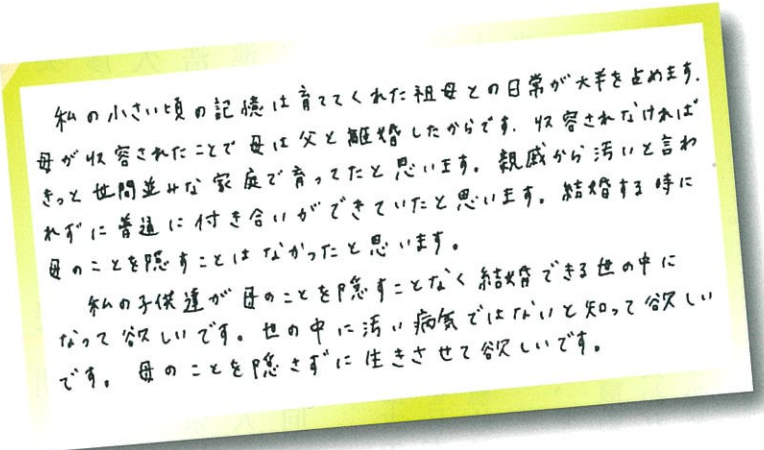 私の小さい頃の記憶は育ててくれた祖母との日常が大半を占めます。
母が収容されたことで母は父と離婚したからです。収容されなければ
きっと世間並みな家庭で育ってたと思います。親戚から汚いと言わ
れずに普通に付き合いができていたと思います。結婚する時に
母のことを隠すことはなかったと思います。
私の子供達が母のことを隠すことなく結婚できる世の中に
なって欲しいです。世の中に汚い病気ではないと知って欲しい
です。母のことを隠さずに生きさせて欲しいです。